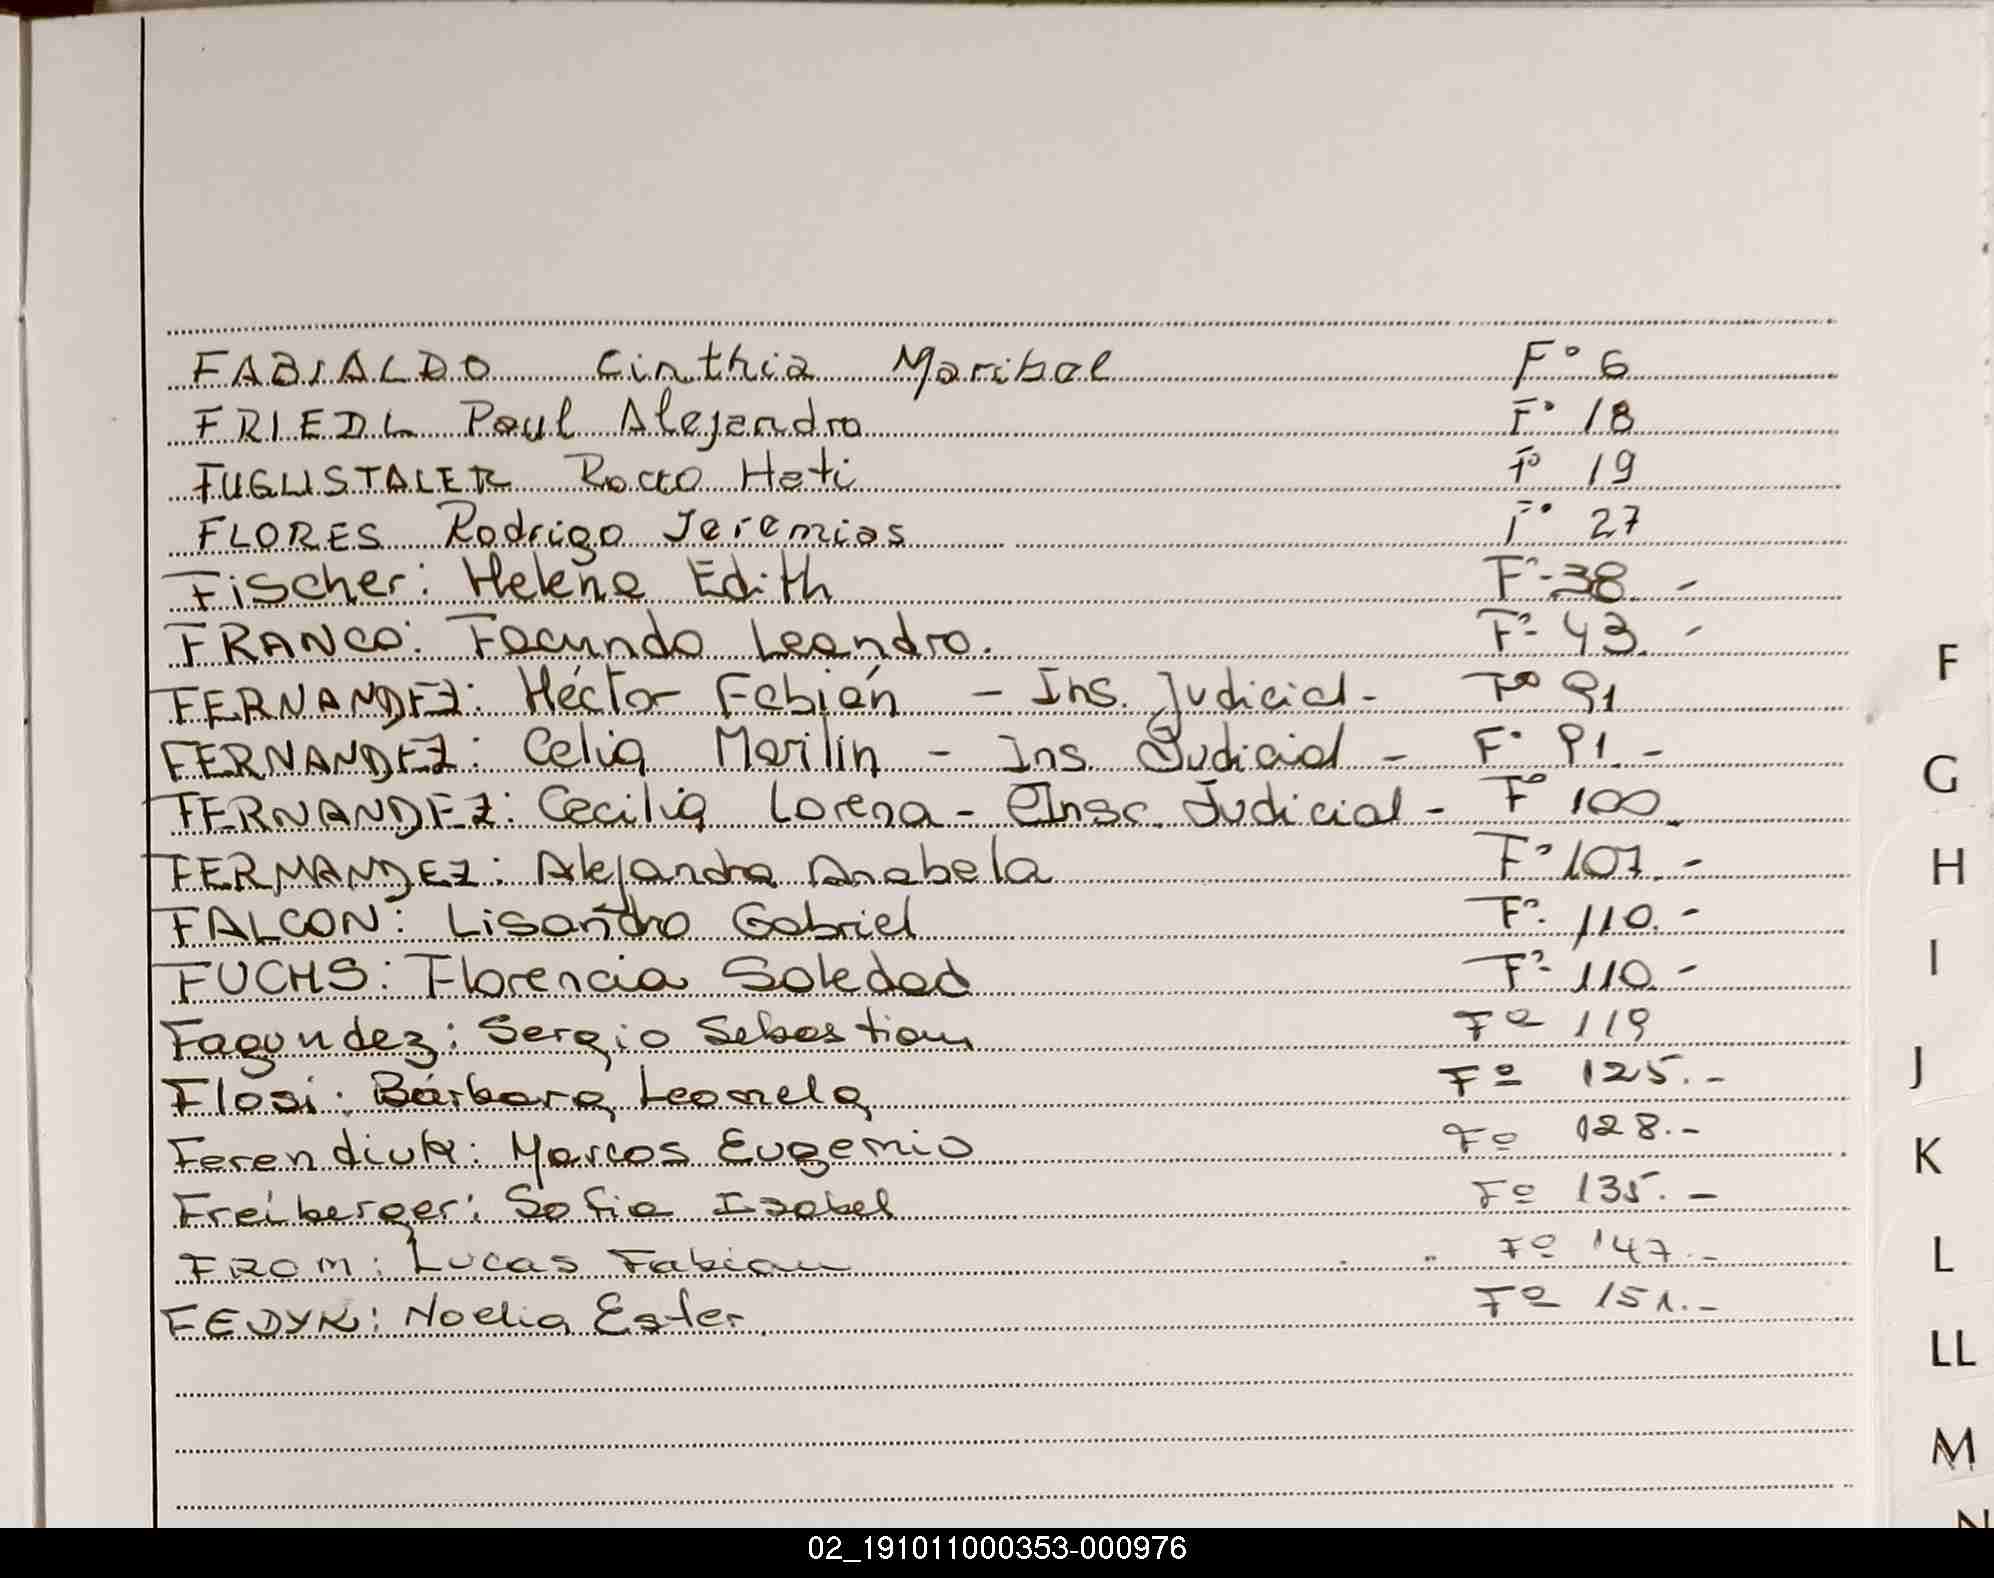 FABIALDO Cinthia Maribel F° 6
FRIEDL Paul Alejandro F° 18
FUGLISTALER Rocco Hati F° 19
FLORES Rodrigo Jeremias F° 27
Fischer: Helena Edith F°-38 -
FRANCO: Facundo Leandro. F°- 43. -
FERNANDEZ: Héctor Fabián - Ins. Judicial - Fº 91
FERNANDEZ: Celia Marilin - Ins. Judicial - F° 91.-
FERNANDEZ: Cecilia Lorena - Insc. Judicial - Fº 100.
FERNANDEZ: Alejandra Anabela F° 107.-
FALCON: Lisandro Gabriel F°. 110.-
FUCHS: Florencia Soledad F°- 110.-
Fagundez: Sergio Sebastian Fº 119
Flosi: Bárbara Leonela Fº 125.-
Ferendiuk: Marcos Eugenio Fº 128.-
Freiberger: Sofia Isabel Fº 135.-
FROM: Lucas Fabian Fº 147.-
FEDYK: Noelia Ester Fº 151.-
F
G
H
I
J
K
L
LL
M
N
02_191011000353-000976